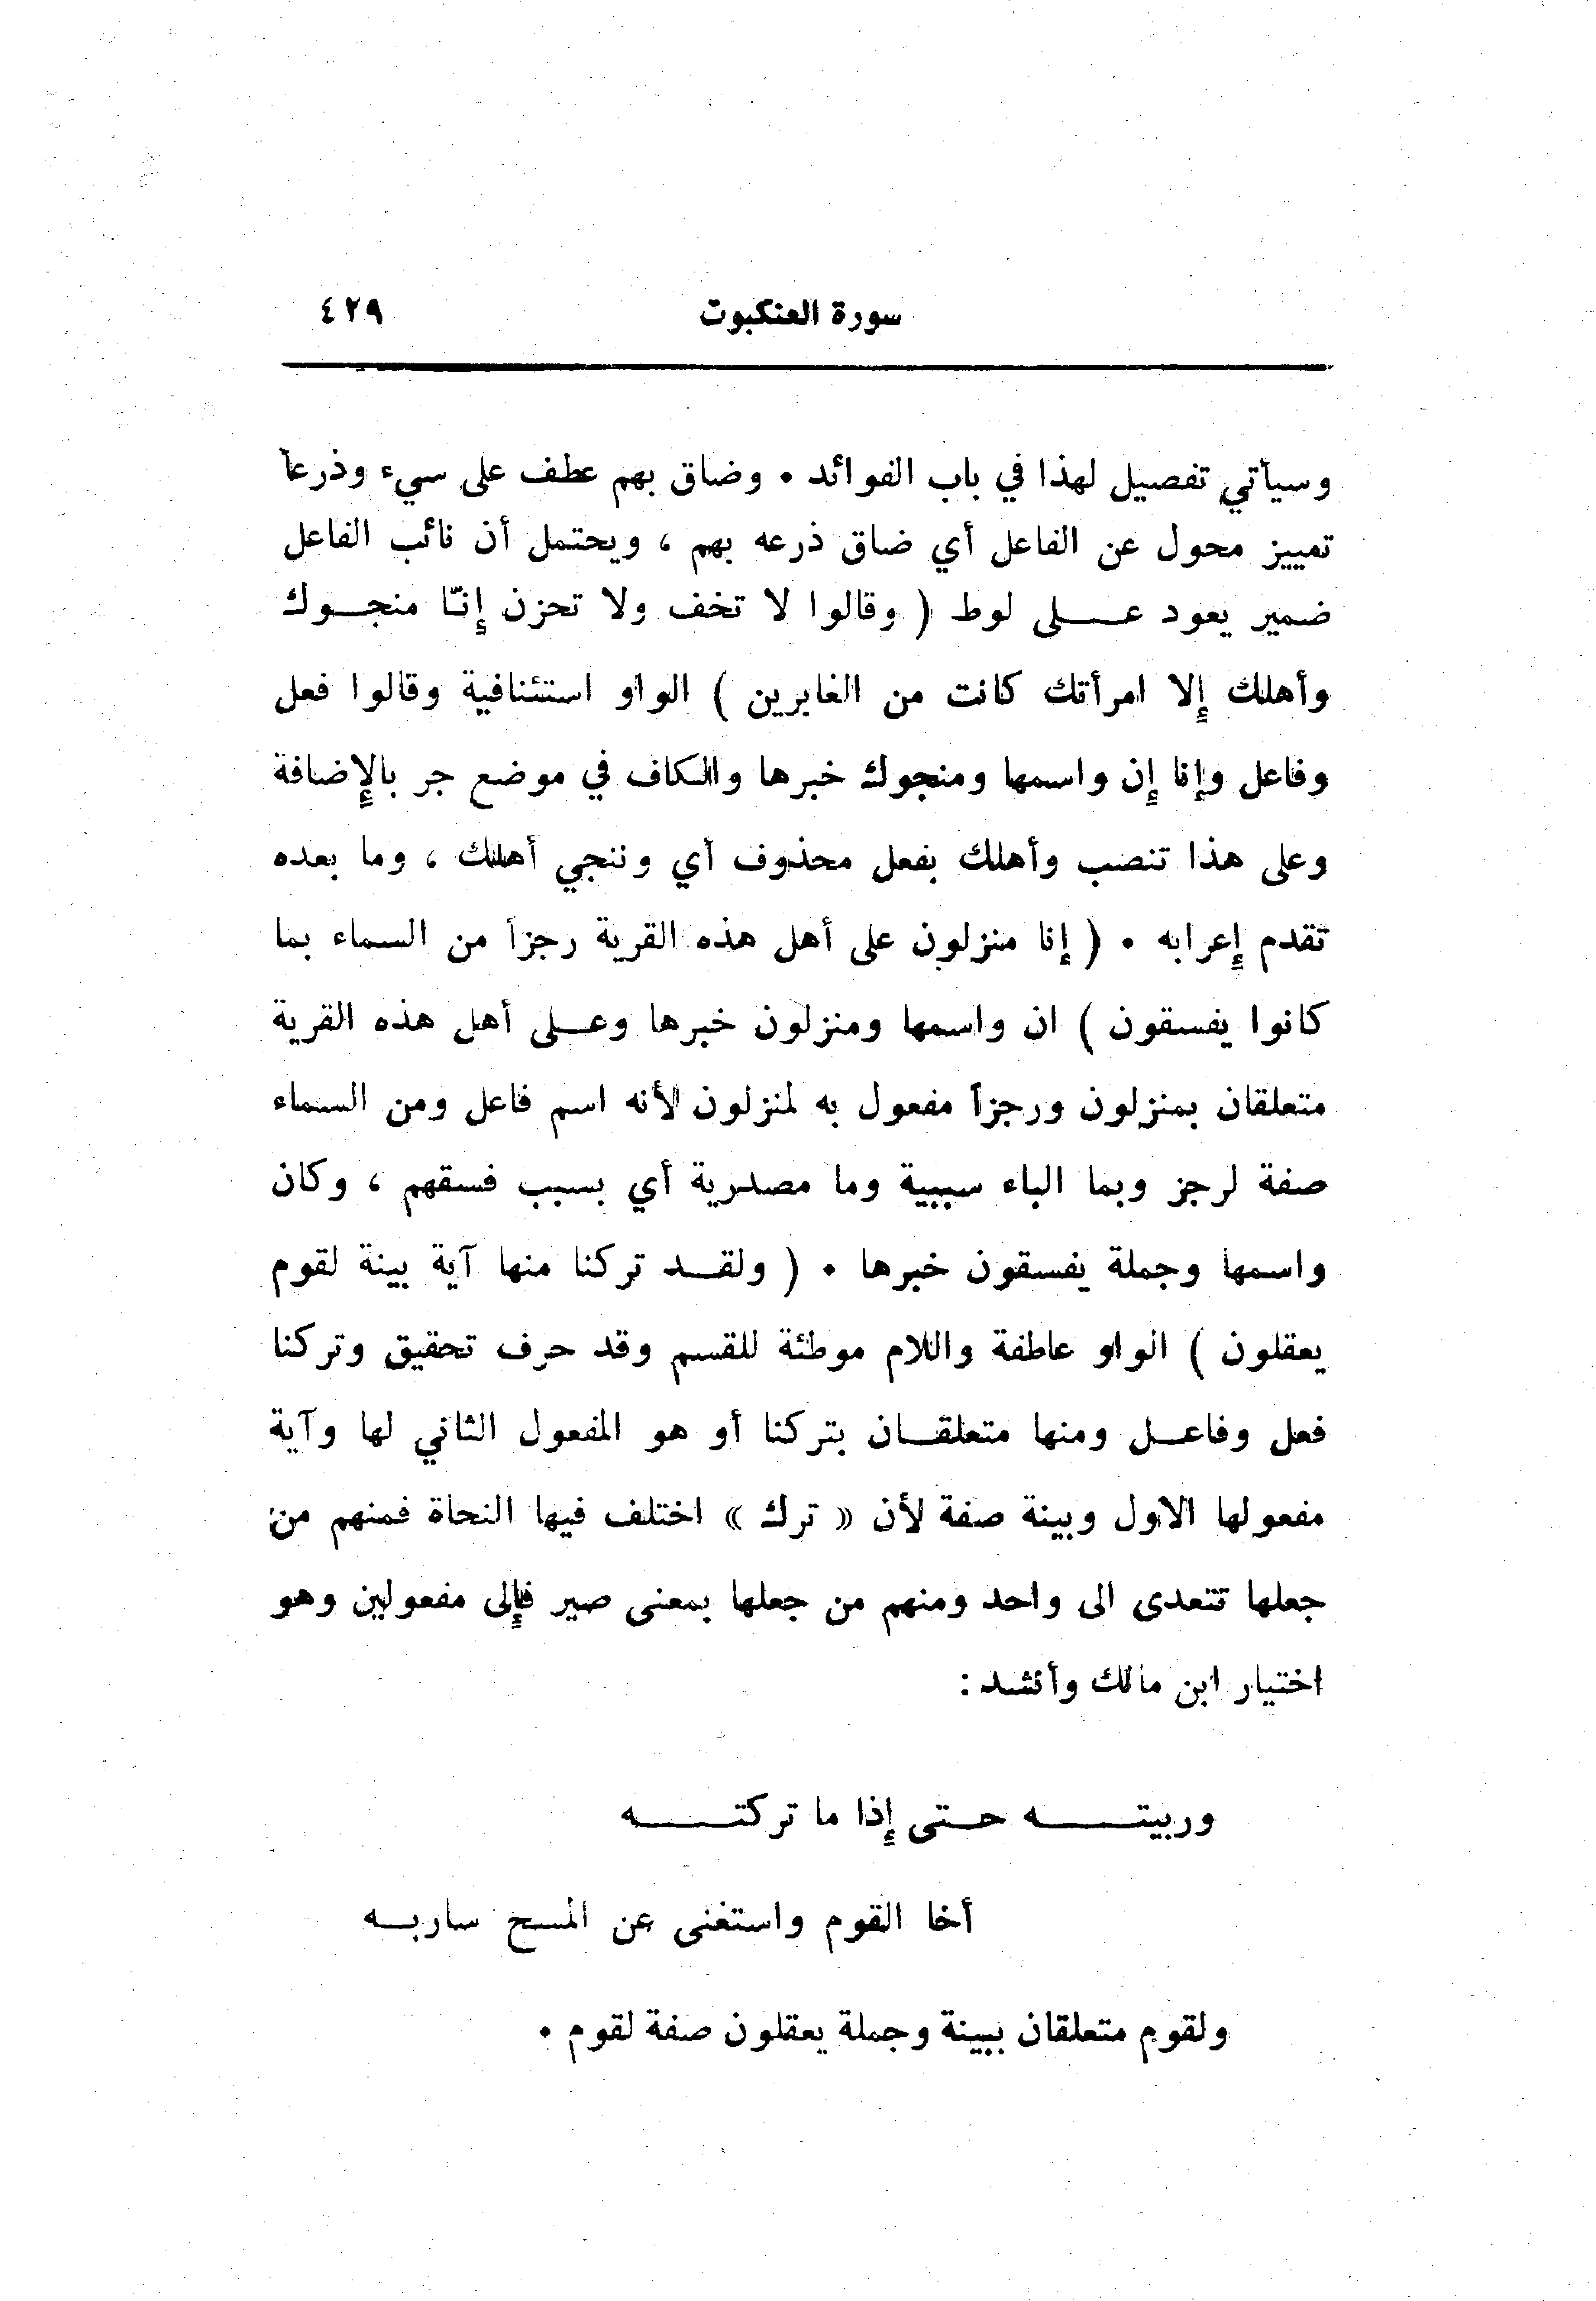 سورة العنكبوت ٤٢٩
وسيأتي تفصيل لهذا في باب الفوائد • وضاق بهم عطف على سيء وذرعاً
تمييز محول عن الفاعل أي ضاق ذرعه بهم ، ويحتمل أن نائب الفاعل
ضمير يعود عـــلى لوط ( وقالوا لا تخف ولا تحزن إنّا منجـــوك
وأهلك إلا امرأتك كانت من الغابرين ) الواو استئنافية وقالوا فعل
وفاعل وإنا إن واسمها ومنجوك خبرها والكاف في موضع جر بالإضافة
وعلى هذا تنصب وأهلك بفعل محذوف أي وننجي أهلك ، وما بعده
تقدم إعرابه • ( إنا منزلون على أهل هذه القرية رجزاً من السماء بما
كانوا يفسقون ) ان واسمها ومنزلون خبرها وعـــلى أهل هذه القرية
متعلقان بمنزلون ورجزاً مفعول به لمنزلون لأنه اسم فاعل ومن السماء
صفة لرجز وبما الباء سببية وما مصدرية أي بسبب فسقهم ، وكان
واسمها وجملة يفسقون خبرها • ( ولقـــد تركنا منها آية بينة لقوم
يعقلون ) الواو عاطفة واللام موطئة للقسم وقد حرف تحقيق وتركنا
فعل وفاعـــل ومنها متعلقـــان بتركنا أو هو المفعول الثاني لها وآية
مفعولها الاول وبينة صفة لأن « ترك » اختلف فيها النحاة فمنهم من
جعلها تتعدى الى واحد ومنهم من جعلها بمعنى صير فإلى مفعولين وهو
اختيار ابن مالك وأنشد :
وربيتـــــه حـــتى إذا ما تركتـــــه
أخا القوم واستغنى عن المسح ساربـــه
ولقوم متعلقان ببينة وجملة يعقلون صفة لقوم •